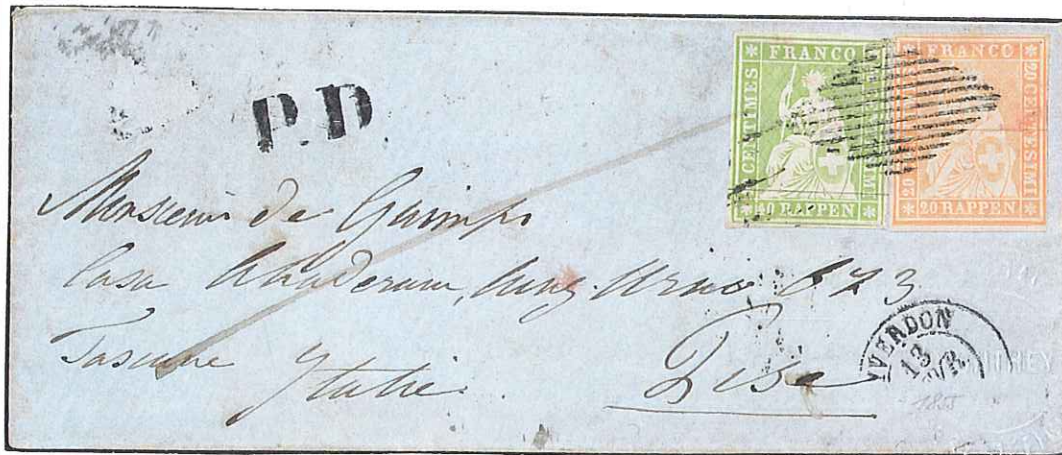 P.D
FRANCO
CENTIMES
40 RAPPEN
FRANCO
20 CENTESIMI
20
20 RAPPEN
Monsieur de Guimps
Casa
Lung. Arno 673
Toscane
Italie
Pise
YVERDON
13
1855